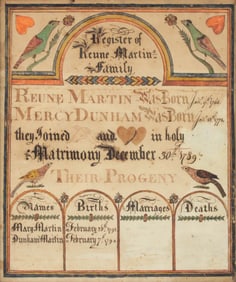 Register of
Reune Martins
Family
REUNE MARTIN Was Born
MERCY DUNHAM Was Born
they Joined and in holy
Matrimony December 30th 1789
THEIR PROGENY
Names Births Marriages Deaths
Mary Martin February
Dunham Martin February